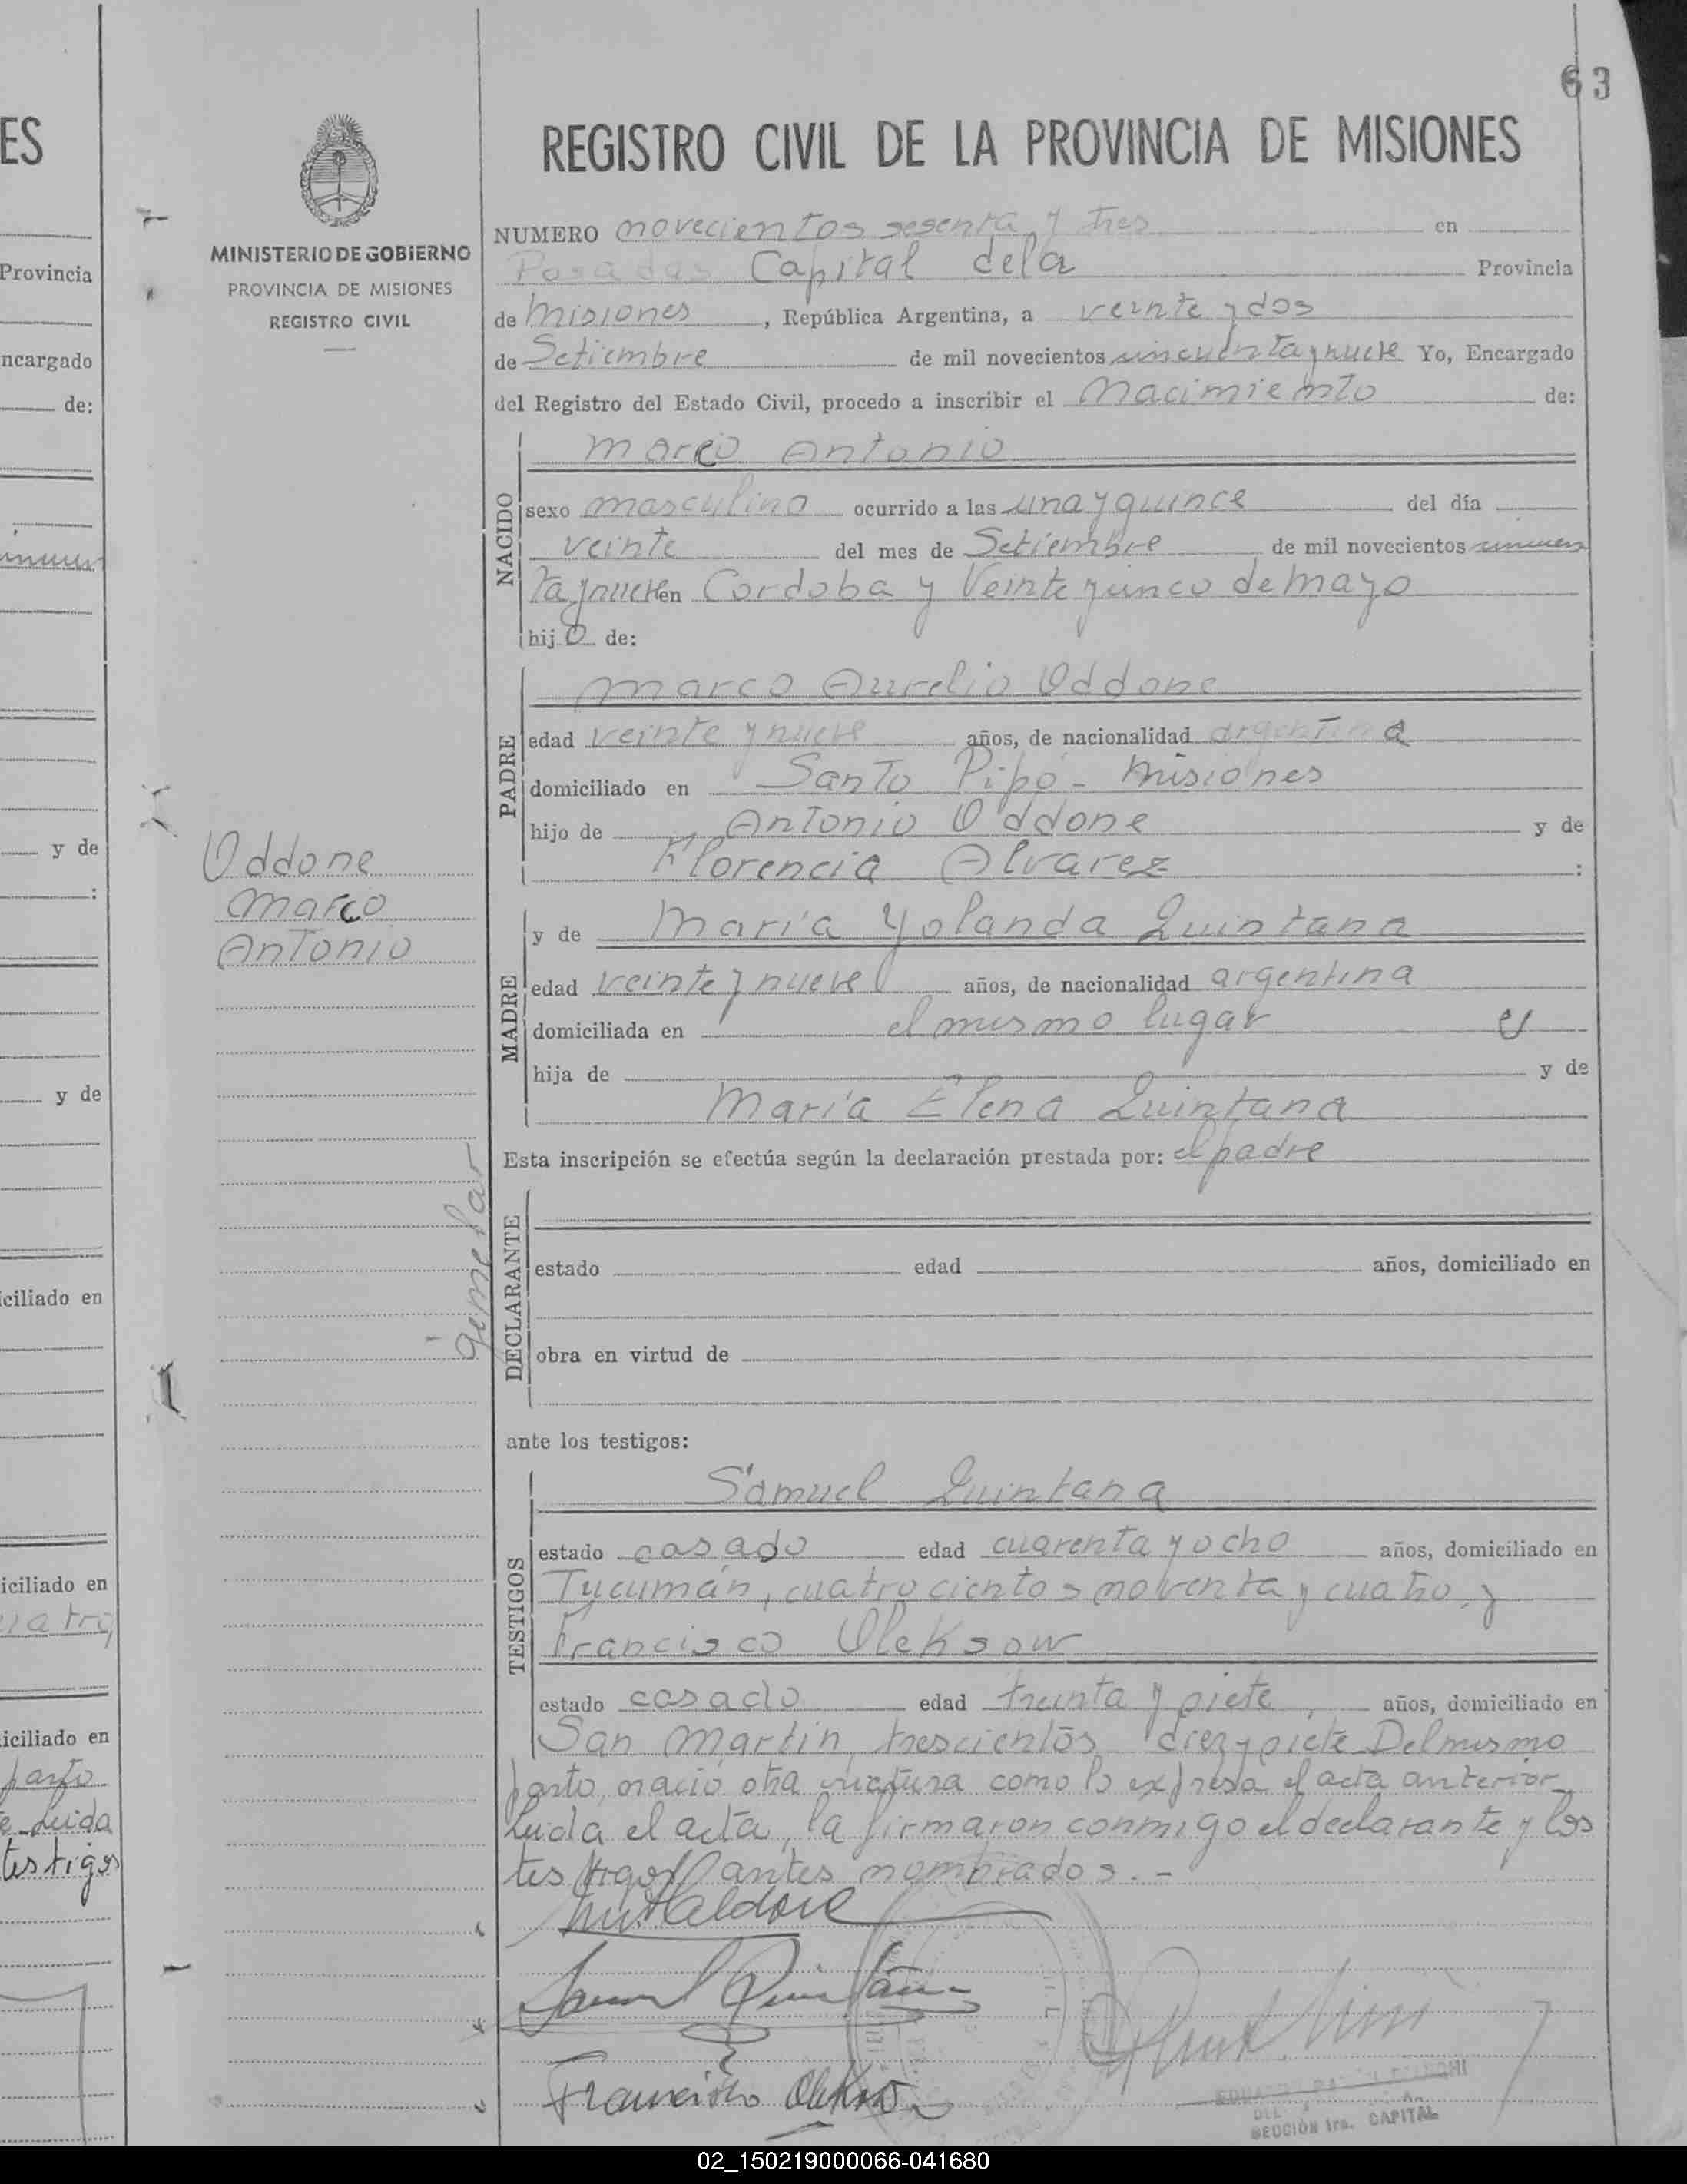 63
ES
REGISTRO CIVIL DE LA PROVINCIA DE MISIONES
MINISTERIO DE GOBIERNO
PROVINCIA DE MISIONES
REGISTRO CIVIL
Provincia
ncargado
de:
y de
:
y de
iciliado en
iciliado en
uatro,
iciliado en
parto
e. Leida
testigos
Oddone
Marco
Antonio
gemelar
NUMERO novecientos sesenta y tres en
Posadas Capital de la Provincia
de Misiones, República Argentina, a veinte y dos
de Setiembre de mil novecientos cincuenta y nueve Yo, Encargado
del Registro del Estado Civil, procedo a inscribir el Nacimiento de:
NACIDO
Marco Antonio
sexo masculino ocurrido a las una y quince del día
veinte del mes de Setiembre de mil novecientos cincuen
ta y nueve en Cordoba y Veinte y cinco de mayo
hijo de:
PADRE
Marco Aurelio Oddone
edad veinte y nueve años, de nacionalidad argentina
domiciliado en Santo Pipó - Misiones
hijo de Antonio Oddone y de
Florencia Alvarez :
MADRE
y de María Yolanda Quintana
edad veinte y nueve años, de nacionalidad argentina
domiciliada en el mismo lugar
hija de y de
María Elena Quintana
Esta inscripción se efectúa según la declaración prestada por: el padre
DECLARANTE
estado edad años, domiciliado en
obra en virtud de
ante los testigos:
TESTIGOS
Samuel Quintana
estado casado edad cuarenta y ocho años, domiciliado en
Tucumán, cuatrocientos noventa y cuatro, y
Francisco Oleksow
estado casado edad treinta y siete, años, domiciliado en
San Martin, trescientos diez y siete Del mismo
parto, nació otra criatura como lo expresa el acta anterior
Leida el acta, la firmaron conmigo el declarante y los
testigos antes nombrados.-
Samuel Quintana
Francisco
SECCIÓN 1ra. CAPITAL
02_150219000066-041680